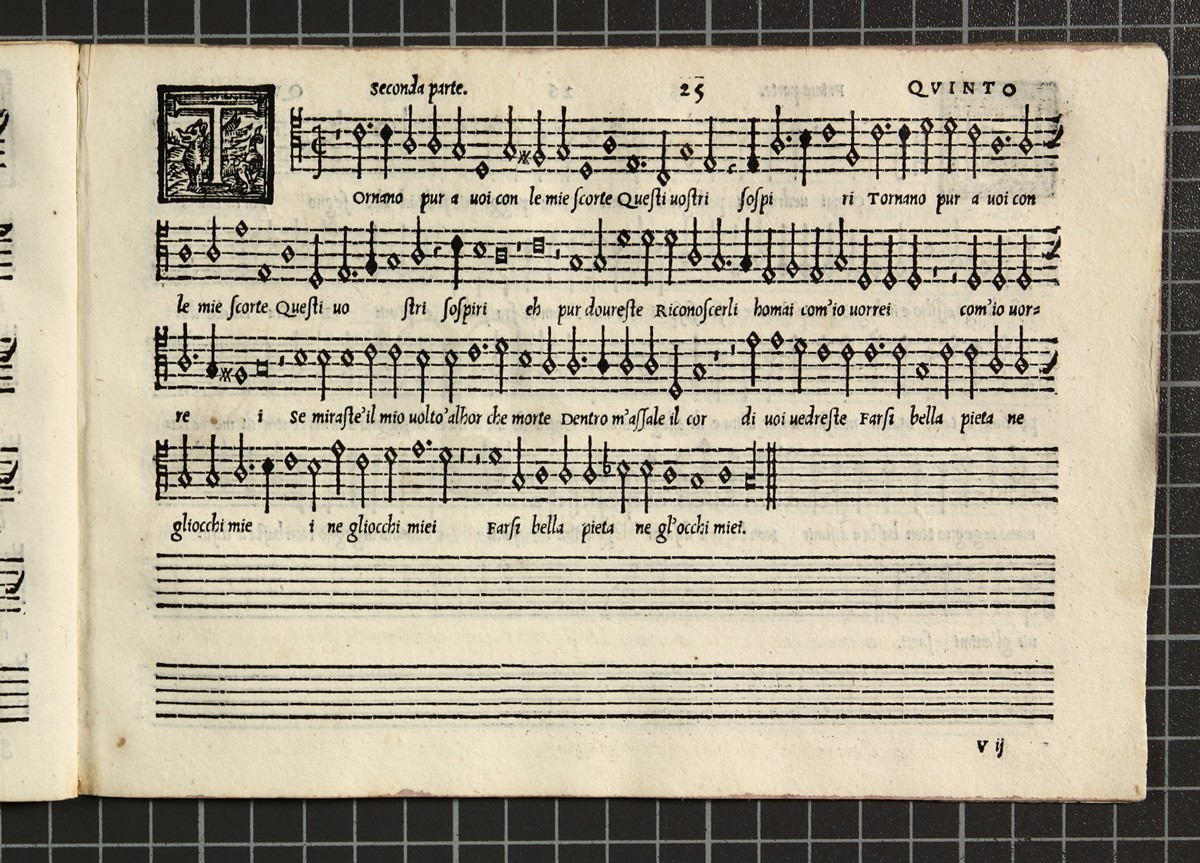 Seconda parte. 25 QVINTO
T Ornano pur a uoi con le mie ſcorte Queſti uoſtri ſoſpi ri Tornano pur a uoi con
le mie ſcorte Queſti uo ſtri ſoſpiri eh pur doureſte Riconoſcerli homai com'io uorrei com'io uor=
re i Se miraſte'il mio uolto'alhor che morte Dentro m'aſſale il cor di uoi uedreſte Farſi bella pieta ne
gliocchi mie i ne gliocchi miei Farſi bella pieta ne gl'occhi miei.
V ij